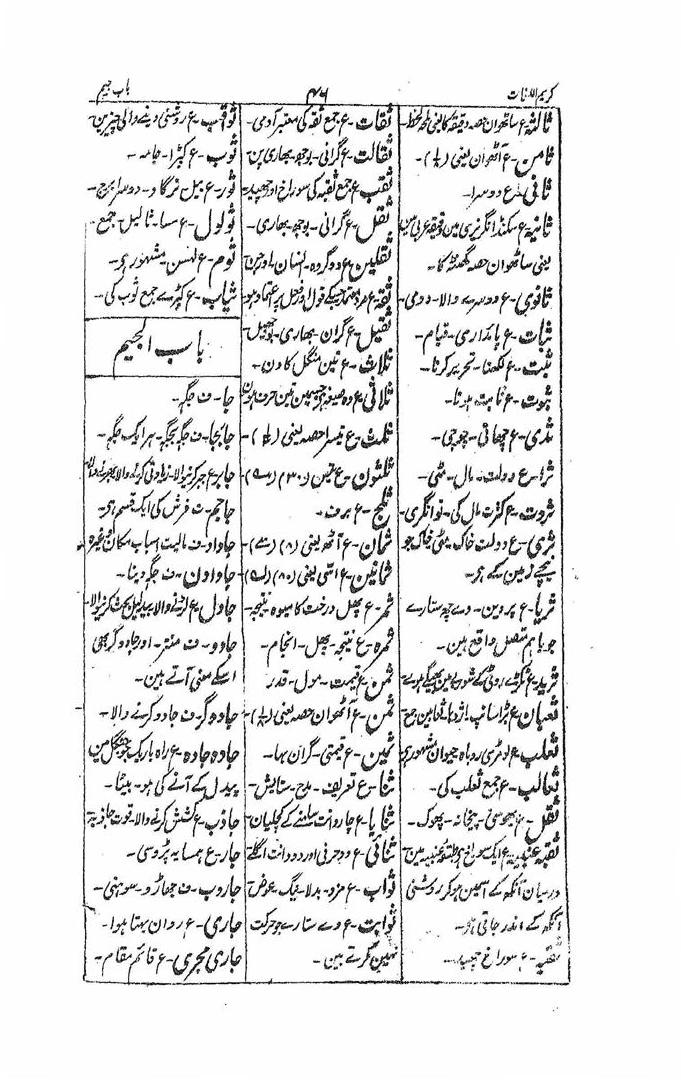 کریم اللغات
۴۶
باب جیم
ثالثہ۔ ع ساٹھوان حصہ دقیقہ کا یعنی لمحہ لحظہ۔
ثامن۔ ع آٹھوان یعنی (۸/۱)۔
ثانی۔ ع دوسرا۔
ثانیہ۔ ع سکنڈ انگریزی مین دقیقہ عربی مین
یعنی ساٹھوان حصہ گھنٹہ کا۔
ثانوی۔ ع دوسرے والا۔ دومی۔
ثبات۔ ع پائداری۔ قیام۔
ثبت۔ ع لکھنا۔ تحریر کرنا۔
ثبوت۔ ع ثابت ہونا۔
ثدی۔ ع چھاتی۔ چوچی۔
ثرا۔ ع دولت۔ مال۔ مٹی۔
ثروت۔ ع کثرت مال کی۔ توانگری۔
ثری۔ ع دولت خاک مٹی خاک جو
نیچے زمین کے ہو۔
ثریا۔ ع پروین۔ وے چھ ستارے
جو باہم متصل واقع ہین۔
ثرید۔ ع ٹکڑے روٹی کے شوربے مین بھیگے ہوے
ثعبان۔ ع بڑا سانپ اژدہا ثعابین جمع
ثعلب۔ ع لومڑی روباہ حیوان مشہور ہے
ثعالب۔ ع جمع ثعلب کی۔
ثفل۔ ع بھوسی۔ پیخانہ۔ پھوک۔
ثقبہ عنبیہ۔ ع ایک سوراخ ہے طبقہ عنبیہ مین
درمیان آنکھ کے اسمین ہو کر روشنی
آنکھ کے اندر جاتی ہے۔
ثقبہ۔ ع سوراخ چھید۔
ثقات۔ ع جمع ثقہ کی معتبر آدمی۔
ثقالت۔ ع گرانی۔ بوجھ بھاری پن
ثقب۔ ع جمع ثقبہ کی سوراخ اور چھید۔
ثقل۔ ع گرانی۔ بوجھ۔ بھاری۔
ثقلین۔ ع دو گروہ۔ انسان اور جن
ثقہ۔ ع مرد معتمد جسکے قول اور فعل پر اعتماد ہو
ثقیل۔ ع گران۔ بھاری۔ بوجھیل
ثلاث۔ ع تین منگل کا دن۔
ثلاثی۔ ع وہ صیغہ ہے جسمین تین حرف ہون
ثلث۔ ع تیسرا حصہ یعنی (۳/۱)۔
ثلثون۔ ع تیس (۳۰)
ثلج۔ ع برف۔
ثمان۔ ع آٹھ یعنی (۸)
ثمانین۔ ع اسی یعنی (۸۰)
ثمر۔ ع پھل درخت کا میوہ نتیجہ۔
ثمرہ۔ ع نتیجہ۔ پھل۔ انجام۔
ثمن۔ ع قیمت۔ مول۔ قدر
ثمن۔ ع آٹھوان حصہ یعنی (۸/۱)۔
ثمین۔ ع قیمتی۔ گران بہا۔
ثنا۔ ع تعریف۔ مدح۔ ستایش۔
ثنایا۔ ع چار دانت سامنے کے کچلیان۔
ثنائی۔ ع دو حرفی اور دو دانت اگلے
ثواب۔ ع مزد۔ بدلا۔ نیگ۔ عوض
ثوابت۔ ع وے ستارے جو حرکت
نہین کرتے ہین۔
ثواقب۔ ع روشنی دینے والی چیزین
ثوب۔ ع کپڑا۔ جامہ۔
ثور۔ ع بیل نرگاو۔ دوسرا برج۔
ثولول۔ ع مسا۔ ثالیل جمع۔
ثوم۔ ع لہسن مشہور ہے۔
ثیاب۔ ع کپڑے جمع ثوب کی۔
باب الجیم
جا۔ ف جگہ۔
جابجا۔ ف جگہ بجگہ۔ ہر ایک جگہ۔
جابر۔ ع جبر کرنیوالا۔ زیادتی کرنے والا
جاجم۔ ت فرش کی ایک قسم ہے۔
جاداد۔ ف مالیت اسباب مکان وغیرہ
جادادن۔ ف جگہ دینا۔
جادل۔ ع لڑنے والا بیدلیل بحث کرنیوالا۔
جادو۔ ف منتر۔ اور جادوگر بھی
اسکے معنی آتے ہین۔
جادوگر۔ ف جادو کرنے والا۔
جادہ جادہ۔ ع راہ باریک جو جنگل مین
پیدل کے آنے کی ہو۔ بیٹا۔
جاذب۔ ع کشش کرنے والا۔ قوت جاذبہ
جار۔ ع ہمسایہ پڑوسی۔
جاروب۔ ف جھاڑو۔ سوہنی۔
جاری۔ ع روان بہتا ہوا۔
جاری مجری۔ ع قائم مقام۔